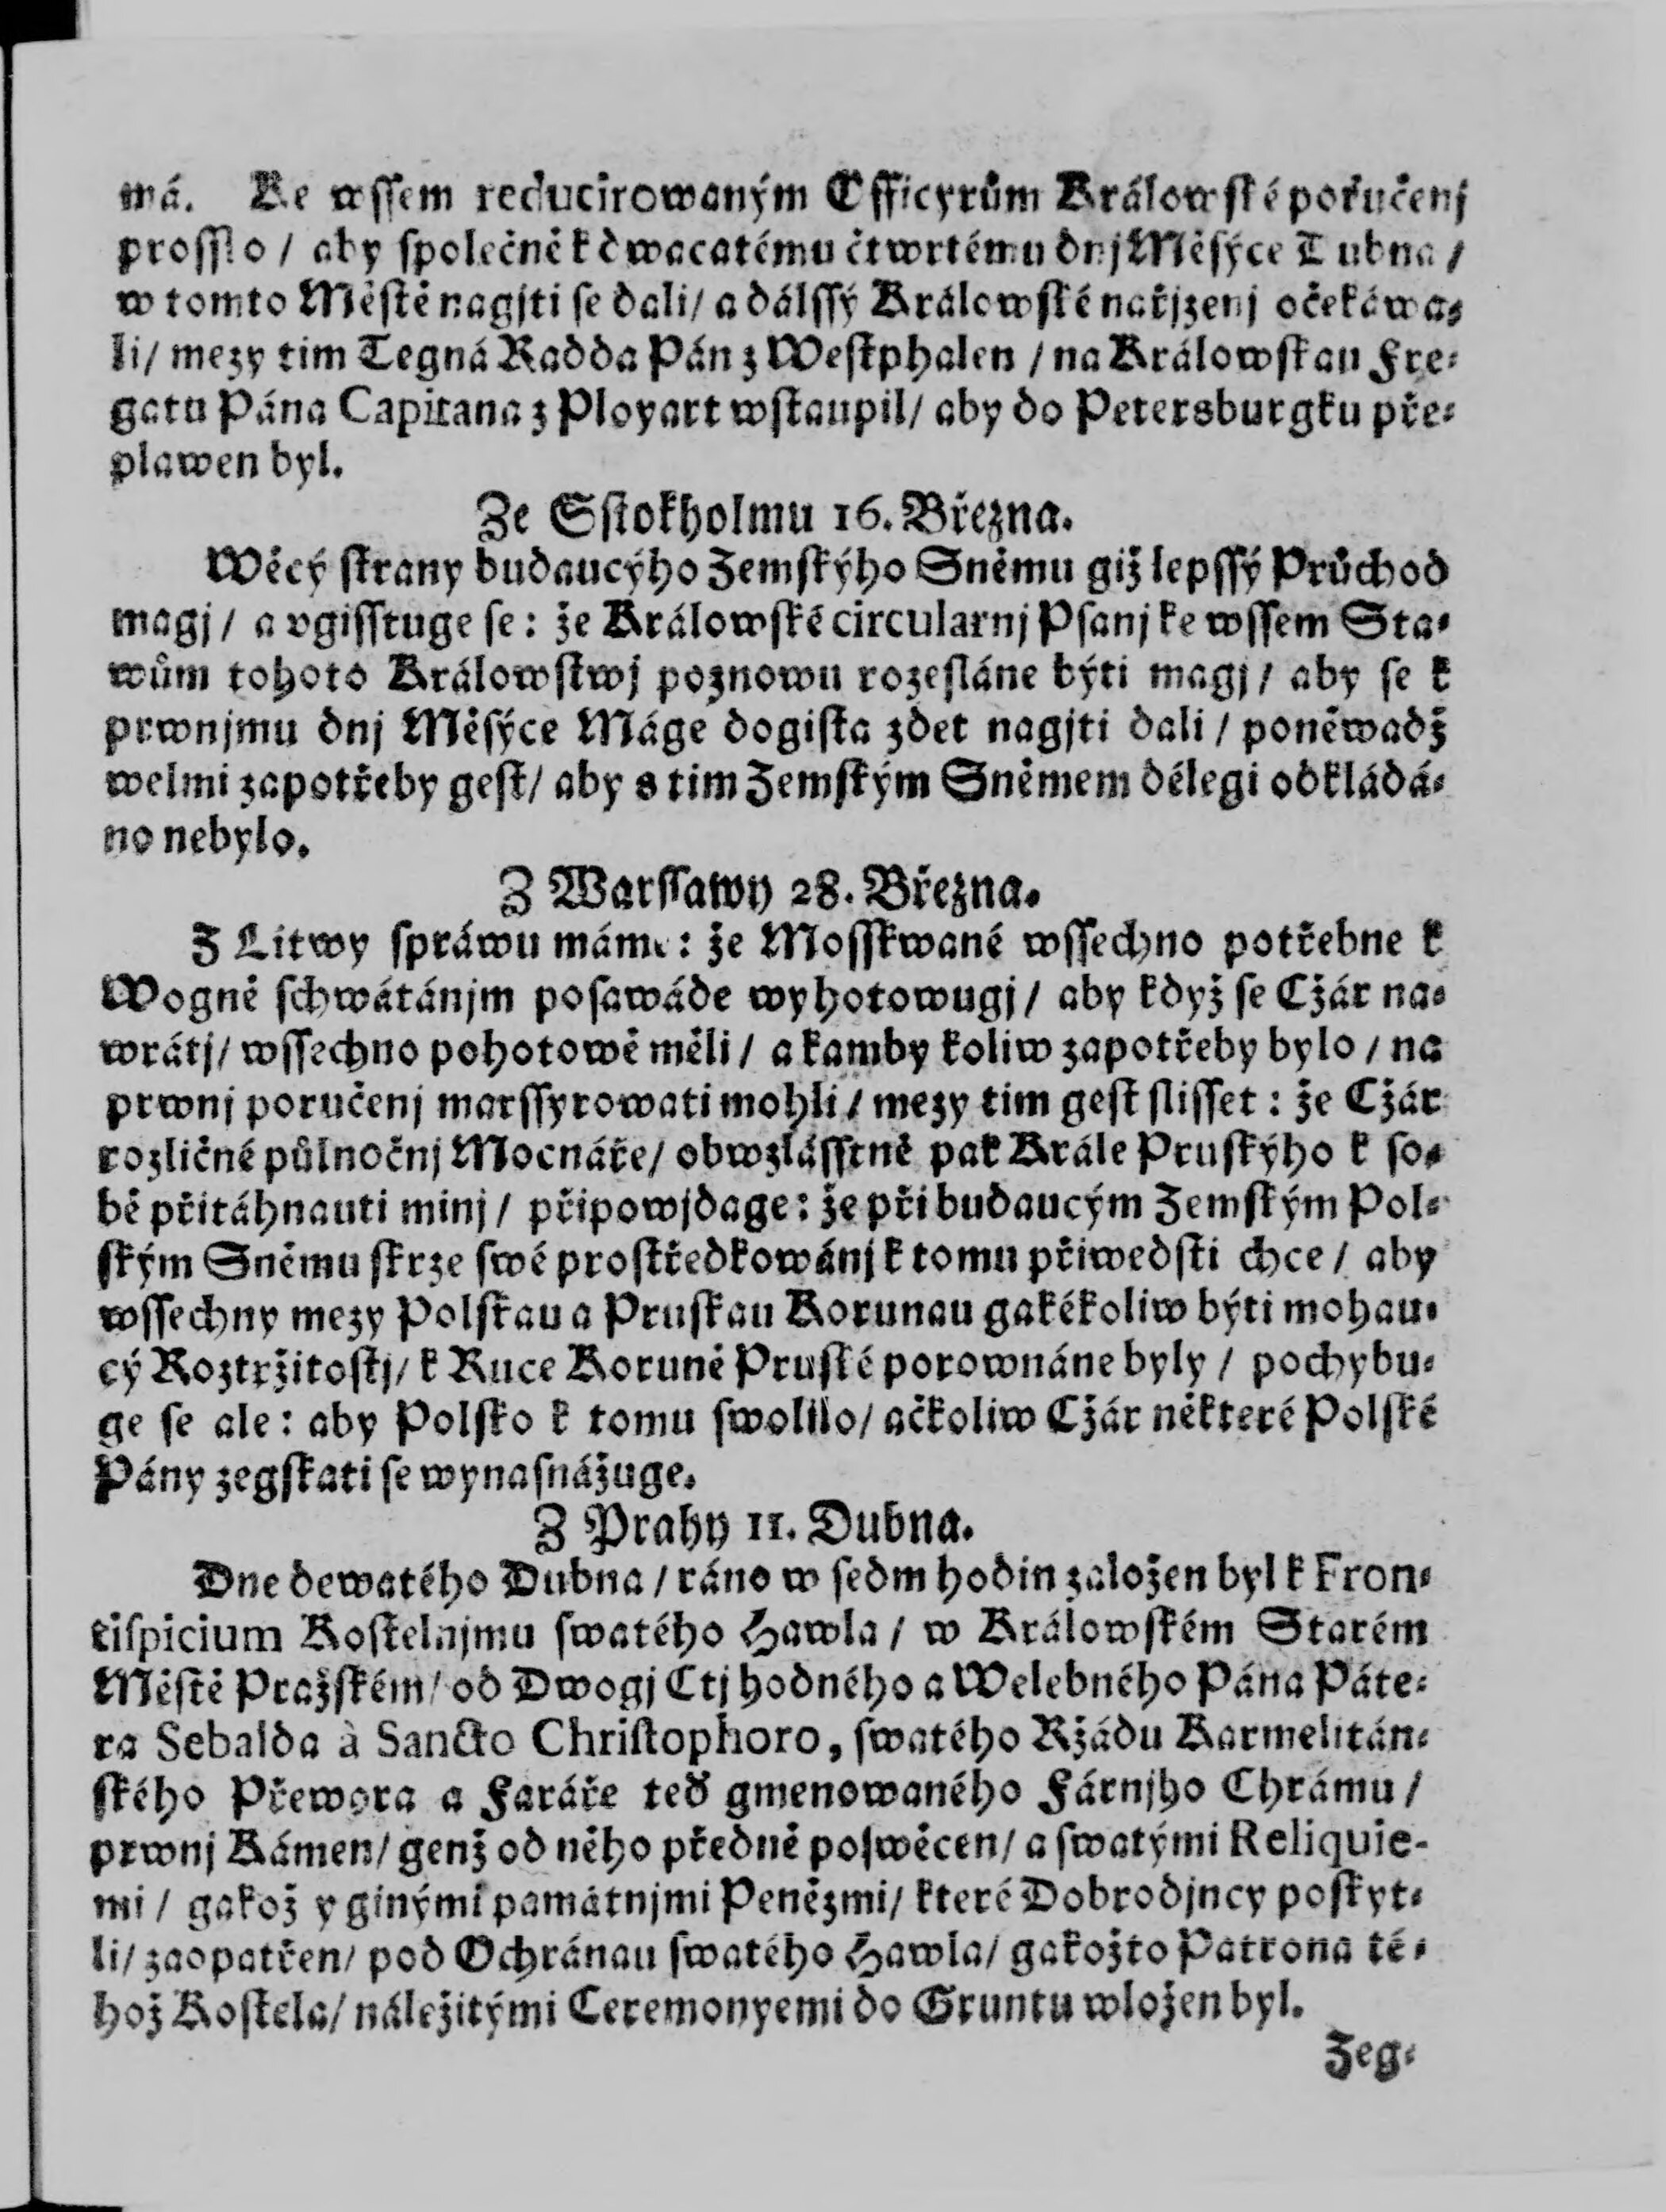 má. Ke wſſem reducirowaným Officyrům Králowſké poručenj
proſſlo / aby ſpolečně k dwacatému čtwrtému dnj Měſýce Dubna /
w tomto Měſtě nagjti ſe dali / a dálſſý Králowſké nařjzenj očekáwa-
li / mezy tim Tegná Radda Pán z Weſtphalen / na Králowſkau Fre-
gatu Pána Capitana z Ployart wſtaupil / aby do Petersburgku pře-
plawen byl.
Ze Sſtokholmu 16. Března.
Wěcý ſtrany budaucýho Zemſkýho Sněmu giž lepſſý Průchod
magj / a vgiſſtuge ſe: že Králowſké circularnj Pſanj ke wſſem Sta-
wům tohoto Králowſtwj poznowu rozeſláne býti magj / aby ſe k
prwnjmu dnj Měſýce Máge dogiſta zdet nagjti dali / poněwadž
welmi zapotřeby geſt / aby s tim Zemſkým Sněmem délegi odkládá-
no nebylo.
Z Warſſawy 28. Března.
Z Litwy ſpráwu máme: že Moſſkwané wſſechno potřebne k
Wogně ſchwátánjm poſawáde wyhotowugj / aby když ſe Cžár na-
wrátj / wſſechno pohotowě měli / a kamby koliw zapotřeby bylo / na
prwnj poručenj marſſyrowati mohli / mezy tim geſt ſliſſet: že Cžár
rozličné půlnočnj Mocnáře / obwzláſſtně pak Krále Pruſkýho k ſo-
bě přitáhnauti minj / připowjdage: že při budaucým Zemſkým Pol-
ſkým Sněmu ſkrze ſwé proſtředkowánj k tomu přiwedſti chce / aby
wſſechny mezy Polſkau a Pruſkau Korunau gakékoliw býti mohau-
cý Roztržitoſtj / k Ruce Koruně Pruſké porownáne byly / pochybu-
ge ſe ale: aby Polſko k tomu ſwolilo / ačkoliw Cžár některé Polſké
Pány zegſkati ſe wynaſnážuge.
Z Prahy 11. Dubna.
Dne dewatého Dubna / ráno w ſedm hodin založen byl k Fron-
tiſpicium Koſtelnjmu ſwatého Hawla / w Králowſkém Starém
Měſtě Pražſkém / od Dwogj Ctj hodného a Welebného Pána Páte-
ra Sebalda à Sancto Chriſtophoro, ſwatého Ržádu Karmelitán-
ſkého Přewora a Faráře teď gmenowaného Fárnjho Chrámu /
prwnj Kámen / genž od něho předně poſwěcen / a ſwatými Reliquie-
mi / gakož y ginými památnjmi Penězmi / které Dobrodjncy poſkyt-
li / zaopatřen / pod Ochránau ſwatého Hawla / gakožto Patrona té-
hož Koſtela / náležitými Ceremonyemi do Gruntu wložen byl.
Zeg-